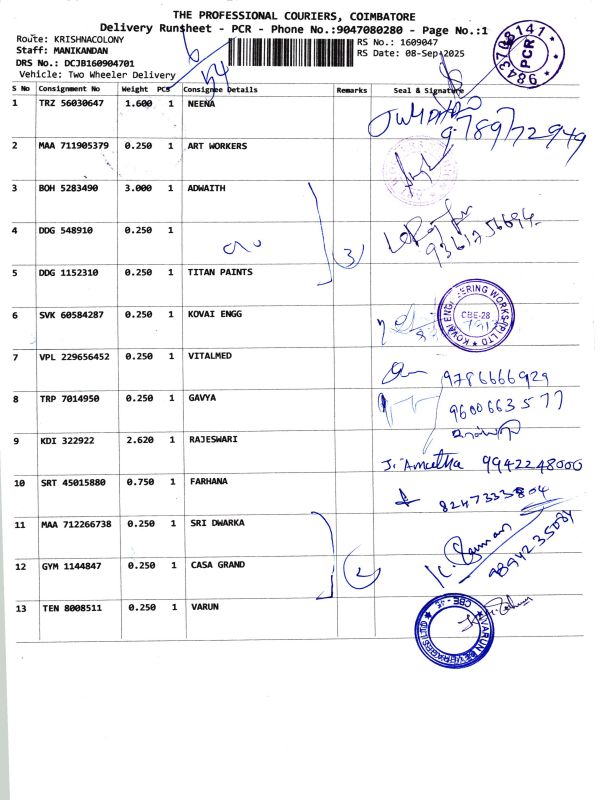 THE PROFESSIONAL COURIERS, COIMBATORE
Delivery Runsheet - PCR - Phone No.:9047080280 - Page No.:1
Route: KRISHNACOLONY
RS No.: 1609047
Staff: MANIKANDAN
RS Date: 08-Sep-2025
DRS No.: DCJB160904701
Vehicle: Two Wheeler Delivery
9843708141
PCR
54
S No Consignment No Weight PCS Consignee Details Remarks Seal & Signature
1 TRZ 56030647 1.600 1 NEENA
9789772949
2 MAA 711905379 0.250 1 ART WORKERS
3 BOH 5283490 3.000 1 ADWAITH
4 DDG 548910 0.250 1
3
9361756694
5 DDG 1152310 0.250 1 TITAN PAINTS
6 SVK 60584287 0.250 1 KOVAI ENGG
KOVAI ENGINEERING WORKS (P) LTD
CBE-28
7 VPL 229656452 0.250 1 VITALMED
9786666929
8 TRP 7014950 0.250 1 GAVYA
9600663577
9 KDI 322922 2.620 1 RAJESWARI
J. Amutha 9942248000
10 SRT 45015880 0.750 1 FARHANA
8247333804
11 MAA 712266738 0.250 1 SRI DWARKA
12 GYM 1144847 0.250 1 CASA GRAND
2
K. Kumar
9894235084
13 TEN 8008511 0.250 1 VARUN
VARUN BEVERAGES LTD